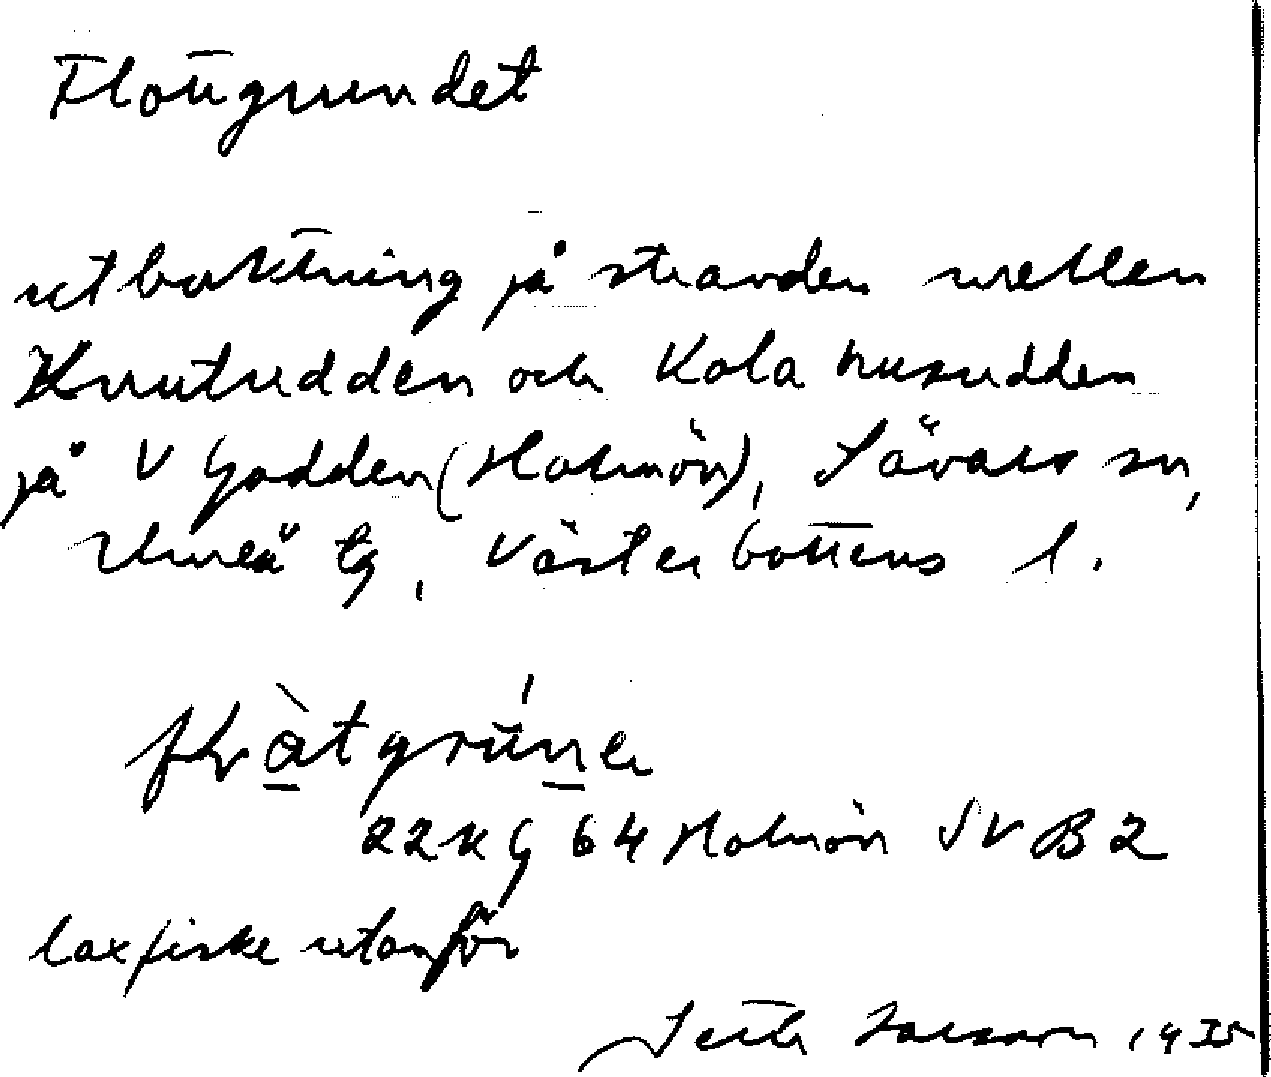 Flottgrundet
utbuktning på stranden mellan
Knutudden och Kolahusudden
på V Gadden (Holmön), Sävars sn,
Umeå tg, Västerbottens l.
22KG 64 Holmön SV B2
laxfiske utanför
Larsson 19